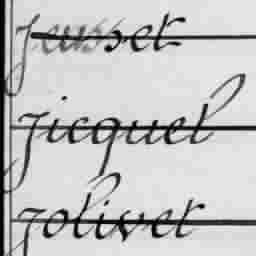 Jeusset
Jicquel
Jolivet